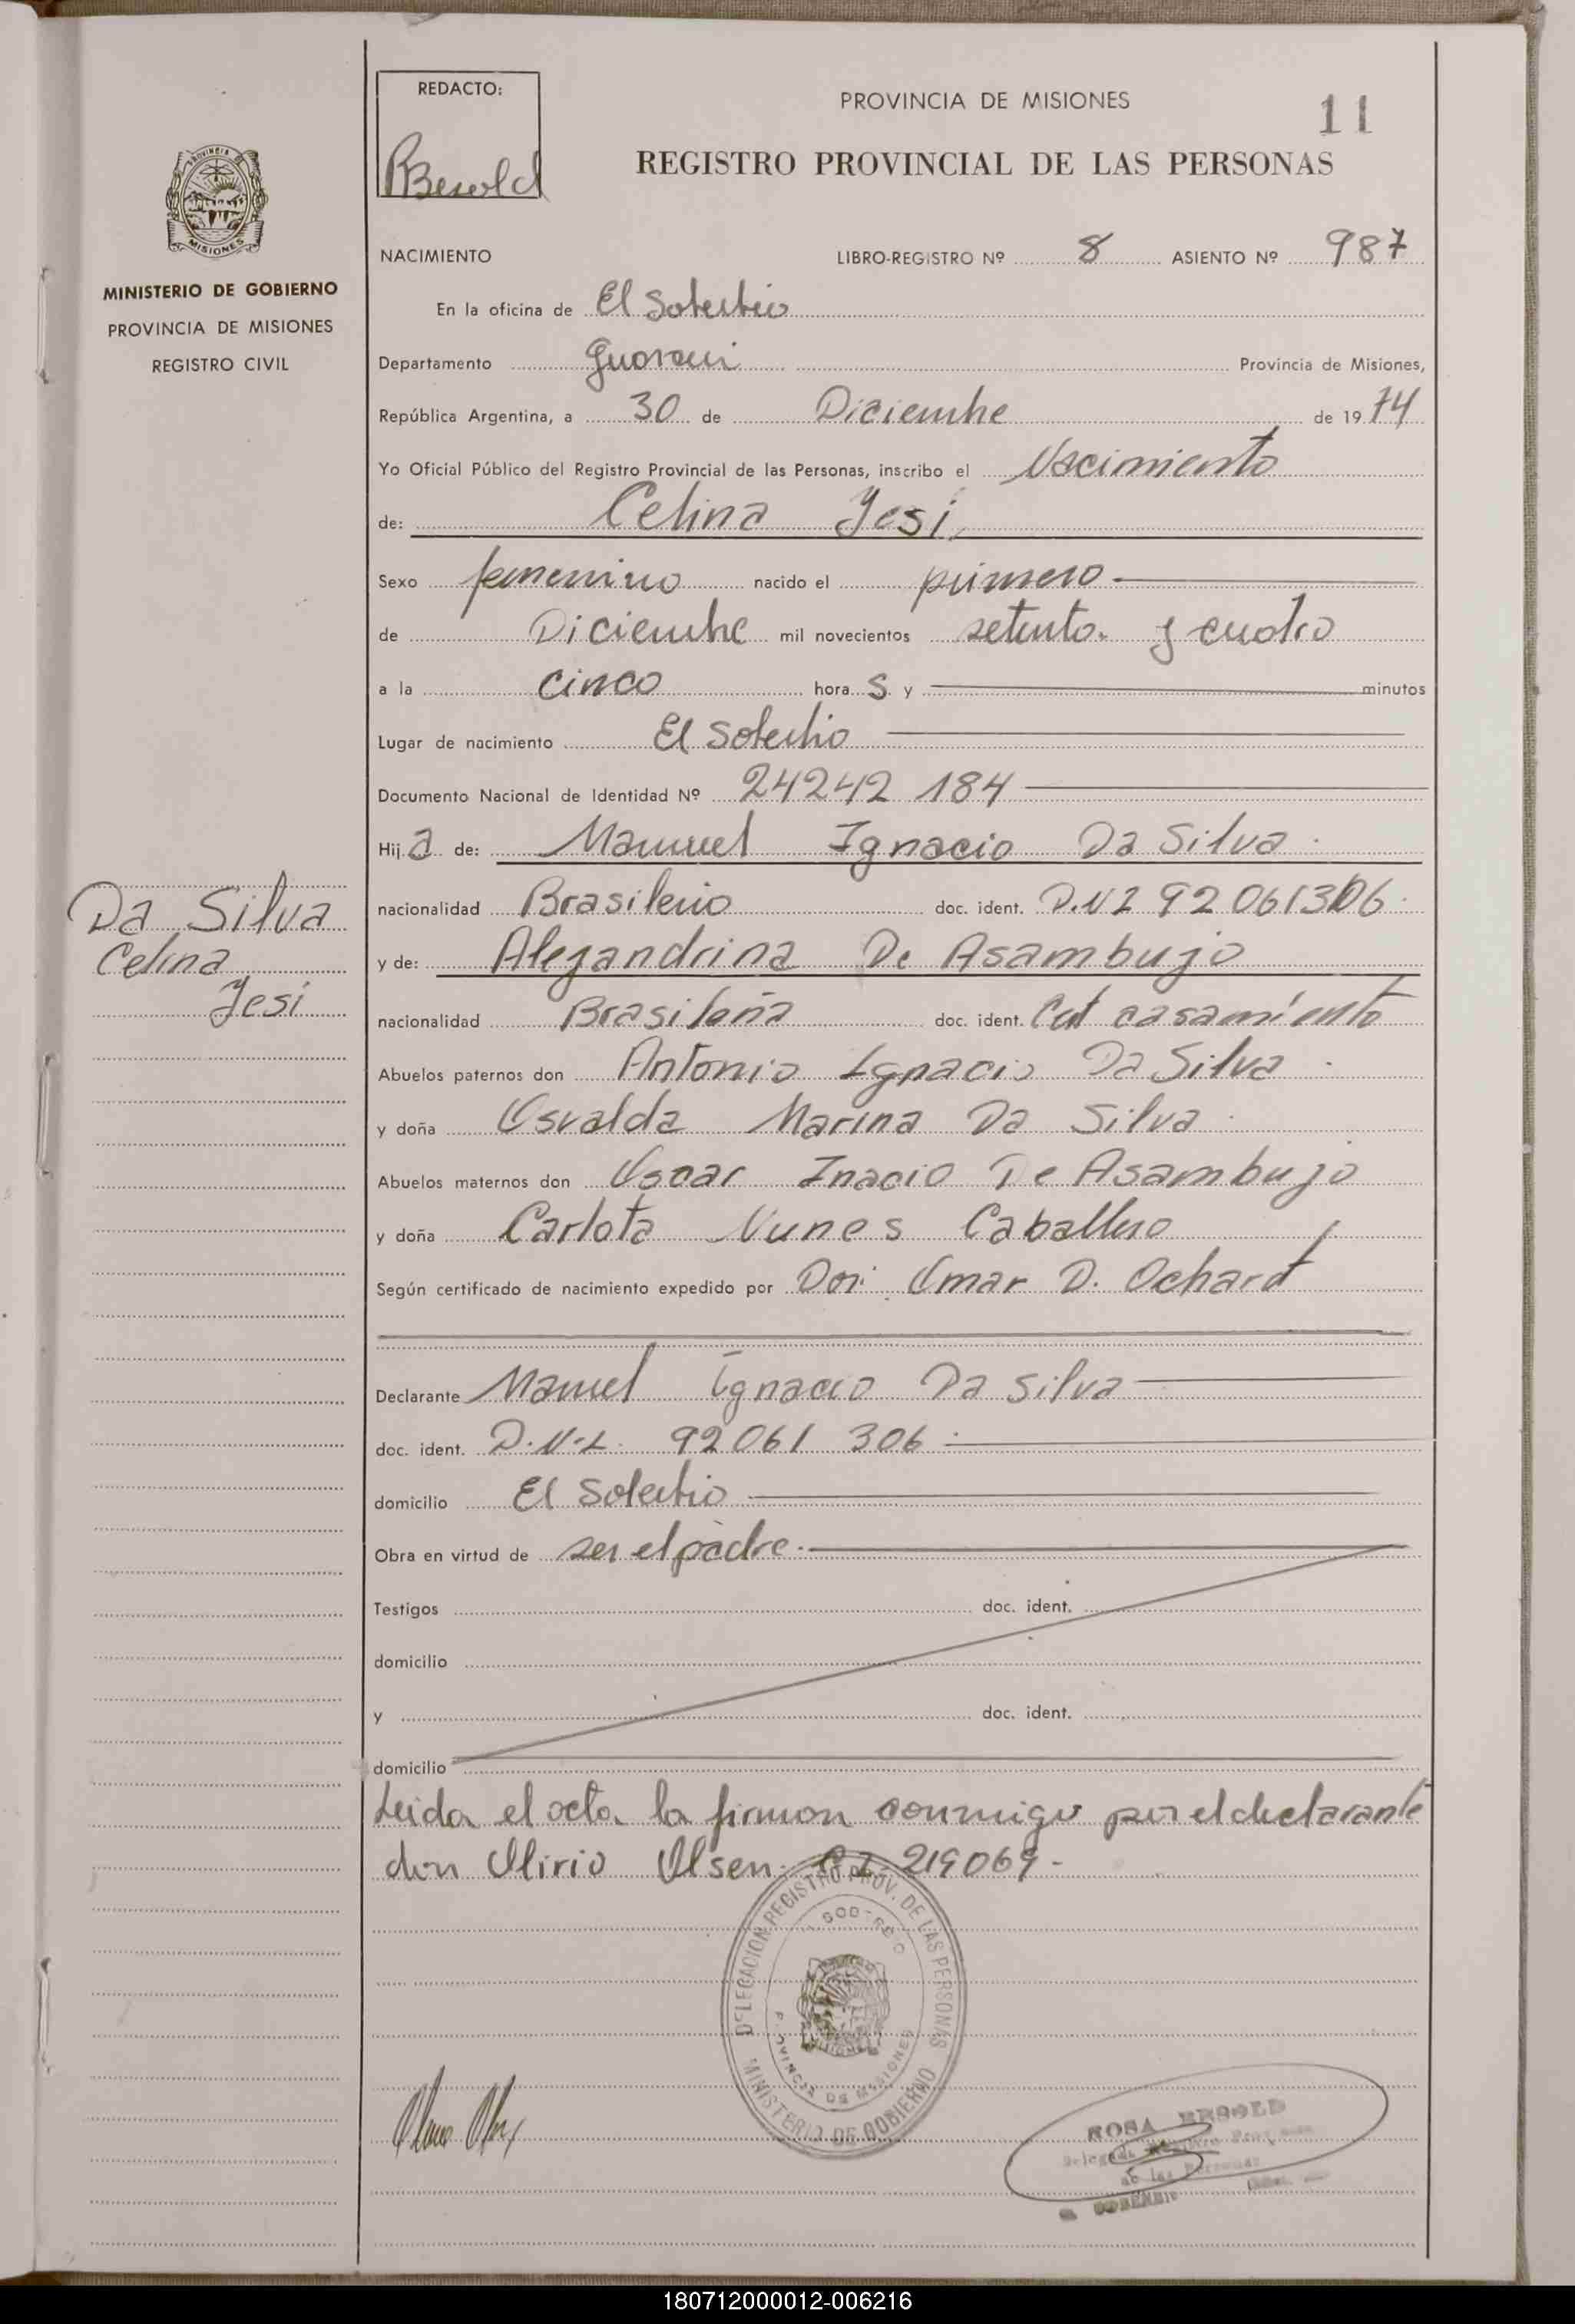 REDACTO:
RBesold
PROVINCIA DE MISIONES
11
REGISTRO PROVINCIAL DE LAS PERSONAS
PROVINCIA DE
MISIONES
MINISTERIO DE GOBIERNO
PROVINCIA DE MISIONES
REGISTRO CIVIL
NACIMIENTO LIBRO-REGISTRO Nº 8 ASIENTO Nº 987
En la oficina de El Soberbio
Departamento Guarani Provincia de Misiones,
República Argentina, a 30 de Diciembre de 1974
Yo Oficial Público del Registro Provincial de las Personas, inscribo el Nacimiento
de: Celina Yesi,
Sexo femenino nacido el primero
de Diciembre mil novecientos setenta y cuatro
a la cinco hora s y minutos
Lugar de nacimiento El Soberbio
Documento Nacional de Identidad Nº 24242 184
Hij a de: Manuel Ignacio Da Silva.
nacionalidad Brasilerio doc. ident. D.N I 92 061306.
Da Silva
Celina
Yesi
y de: Alejandrina De Asambujo
nacionalidad Brasileña doc. ident. Cert casamiento
Abuelos paternos don Antonio Ignacio Da Silva.
y doña Osvalda Marina Da Silva.
Abuelos maternos don Oscar Inacio De Asambujo
y doña Carlota Nunes Caballero
Según certificado de nacimiento expedido por Dor. Omar D. Ochard
Declarante Manuel Ignacio Da Silva
doc. ident. D.N.I. 92061 306.
domicilio El Soberbio
Obra en virtud de ser el padre.
Testigos doc. ident.
domicilio
y doc. ident.
domicilio
Leida el acta la firman conmigo por el declarante
don Olirio Olsen. C I 219069-
DELEGACION REGISTRO PROV. DE LAS PERSONAS
PROVINCIA DE MISIONES
MINISTERIO DE GOBIERNO
ROSA BESOLD
de las Personas
180712000012-006216